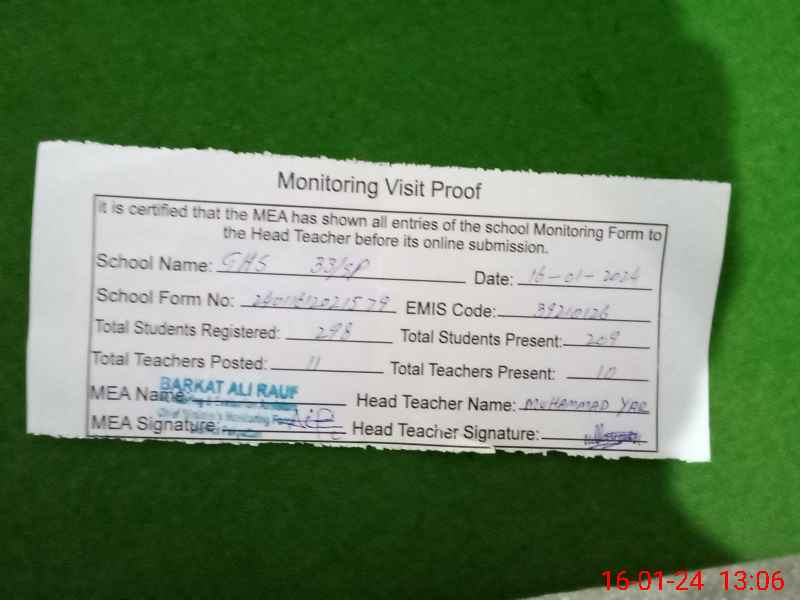 Monitoring Visit Proof
It is certified that the MEA has shown all entries of the school Monitoring Form to
the Head Teacher before its online submission.
School Name: GHS 33/SP Date: 16-01-2024
School Form No: EMIS Code: 39210126
Total Students Registered: 298 Total Students Present: 209
Total Teachers Posted: 11 Total Teachers Present: 10
MEA Name: BARKAT ALI RAUF Head Teacher Name: MUHAMMAD YAR
MEA Signature: Head Teacher Signature:
16-01-24 13:06